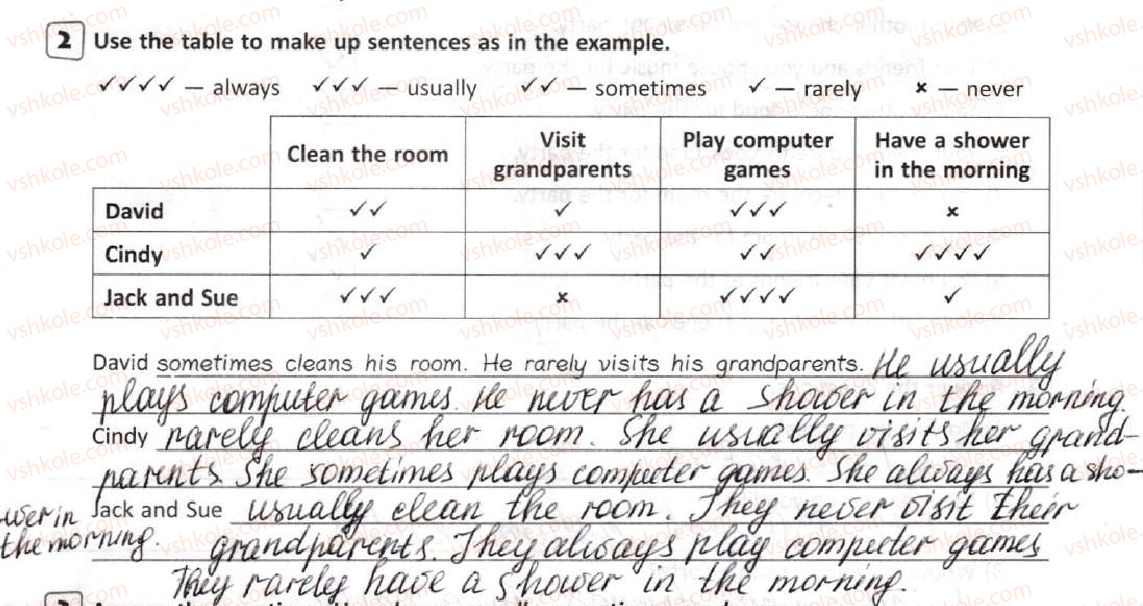 2 Use the table to make up sentences as in the example.
✓✓✓✓ — always ✓✓✓ — usually ✓✓ — sometimes ✓ — rarely × — never
Clean the room Visit grandparents Play computer games Have a shower in the morning
David ✓✓ ✓ ✓✓✓ ×
Cindy ✓ ✓✓✓ ✓✓ ✓✓✓✓
Jack and Sue ✓✓✓ × ✓✓✓✓ ✓
David sometimes cleans his room. He rarely visits his grandparents. He usually
plays computer games. He never has a shower in the morning.
Cindy rarely cleans her room. She usually visits her grand-
parents. She sometimes plays computer games. She always has a sho-
wer in
the morning.
Jack and Sue usually clean the room. They never visit their
grandparents. They always play computer games
They rarely have a shower in the morning.
vshkole.com